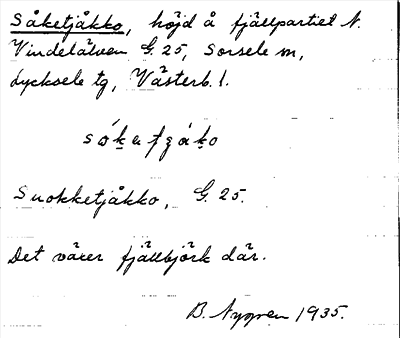 Såketjåkko, höjd å fjällpartiet N.
Vindelälven G. 25, Sorsele sn,
Lycksele tg, Västerb. l.
Suokketjåkko, G. 25.
Det växer fjällbjörk där.
B. Nygren 1935.